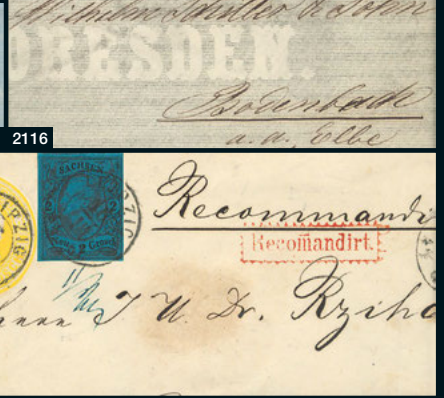 Wilhelm Schiller & Sohn
DRESDEN.
Bodenbach
a.d. Elbe
2116
SACHSEN
2 2
Neu 2 Grosch
LEIPZIG
Recommandi
Recom̄andirt.
J U. Dr. Rziha